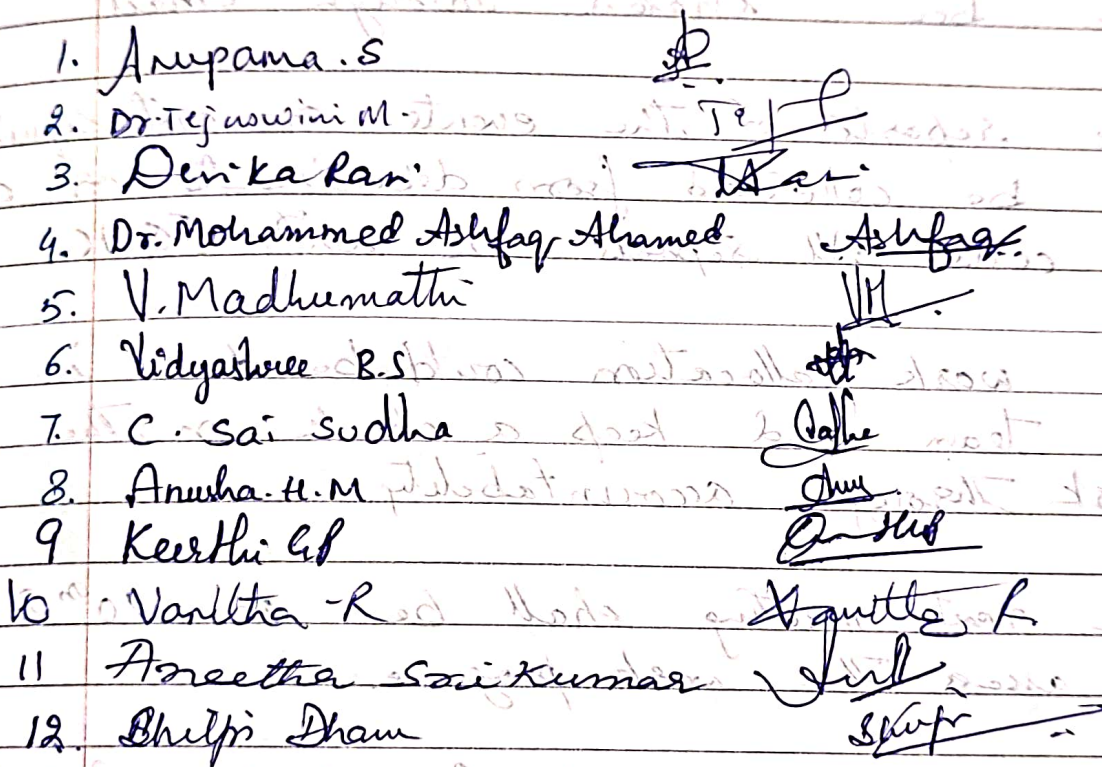 1. Anupama.S
2. Dr.Tejaswini M.
3. Devika Rani
4. Dr. Mohammed Ashfaq Ahamed Ashfaq
5. V. Madhumathi VM
6. Vidyashree B.S
7. C. Sai Sudha
8. Anusha.H.M
9 Keerthi GP
10 Vanitha -R
11 Aneetha Sreekumar
12. Shilpi Dham